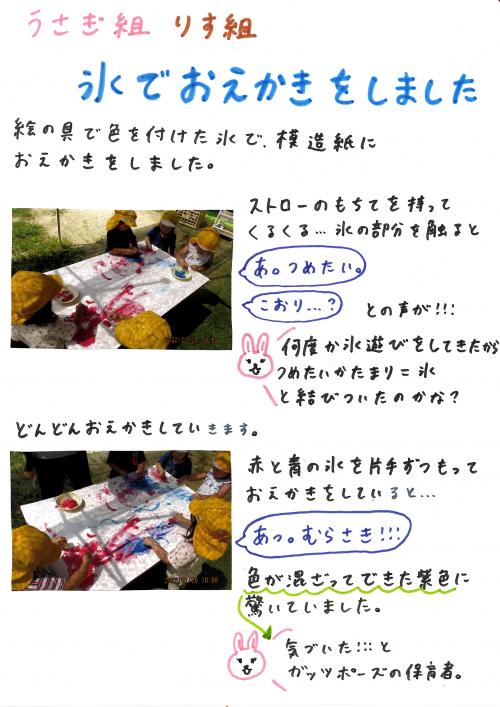 うさぎ組 りす組
氷でおえかきをしました
絵の具で色を付けた氷で、模造紙に
おえかきをしました。
ストローのもちてを持って
くるくる…氷の部分を触ると
あ。つめたい。
こおり…?
との声が!!!
何度か氷遊びをしてきたから
つめたいかたまり=氷
と結びついたのかな?
どんどんおえかきしていきます。
赤と青の氷を片手ずつもって
おえかきをしていると…
あっ。むらさき!!!
色が混ざってできた紫色に
驚いていました。
気づいた!!!と
ガッツポーズの保育者。